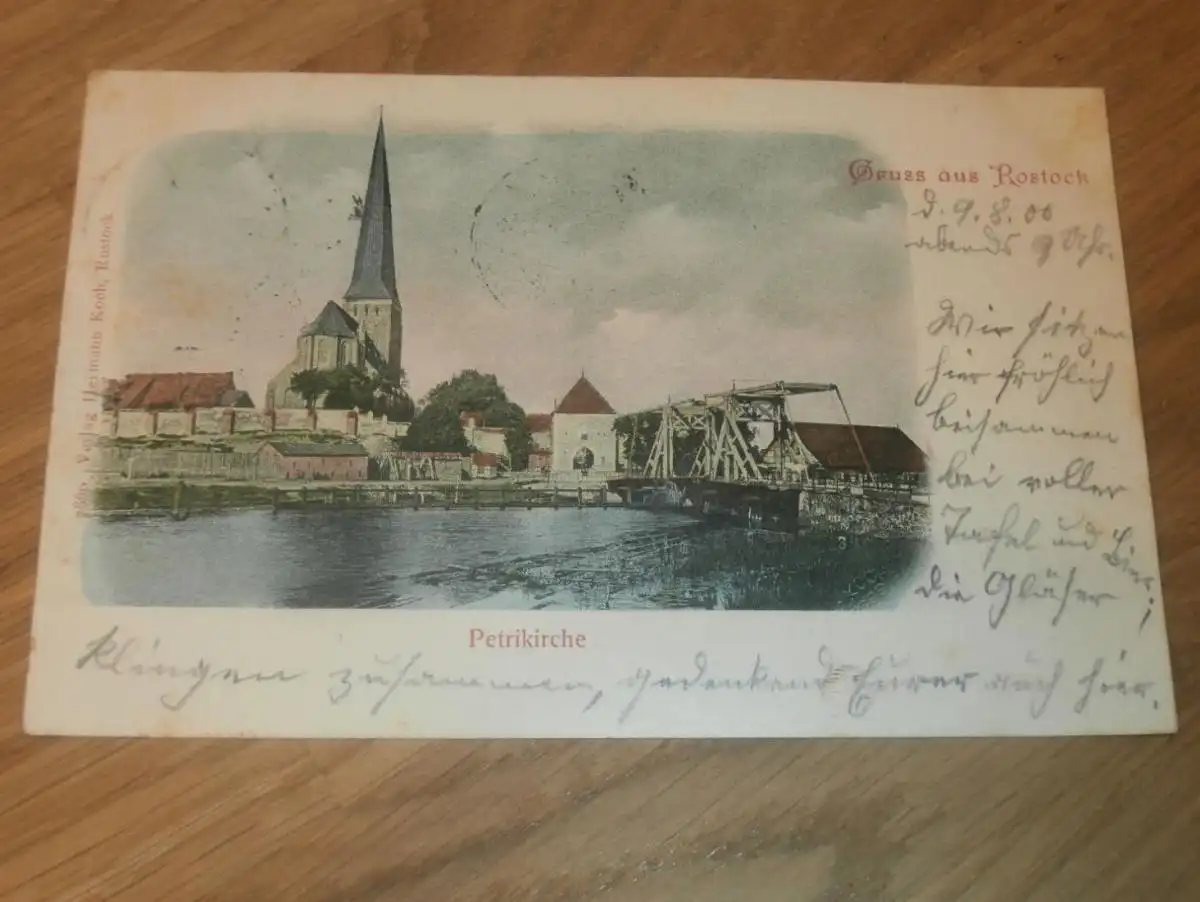 Gruss aus Rostock
d. 9. 8. 00
abends 9 Uhr.
Wir sitzen
hier fröhlich
beisammen
bei voller
Tafel und Bier;
die Gläser
klingen zusammen, gedenkend Eurer auch hier.
Petrikirche
Verlag Hermann Koch, Rostock
3